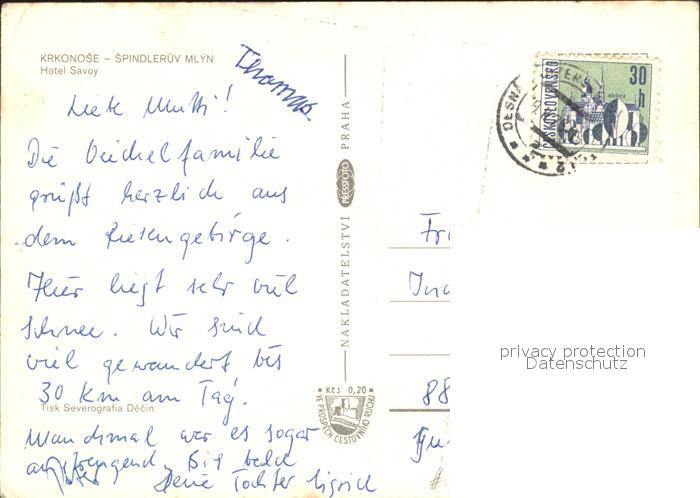 KRKONOŠE – ŠPINDLERŮV MLÝN
Hotel Savoy
Thomas.
Liebe Mutti!
Die Deichelfamilie
grüßt herzlich aus
dem Riesengebirge.
Hier liegt sehr viel
Schnee. Wir sind
viel gewandert bis
30 km am Tag.
Tisk Severografia Děčín
Manchmal war es sogar
anstrengend. Bis bald
Deine Tochter Sigrid
NAKLADATELSTVÍ PRESSFOTO PRAHA
Kčs 0,20
VE PROSPĚCH CESTOVNÍHO RUCHU
ČESKOSLOVENSKO
30 h
KOŠICE
DESNÁ
Fr
88
privacy protection
Datenschutz